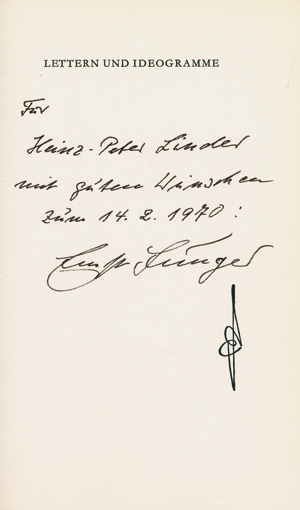 LETTERN UND IDEOGRAMME
Für
Heinz-Peter Linder
mit guten Wünschen
zum 14. 2. 1970:
Ernst Jünger